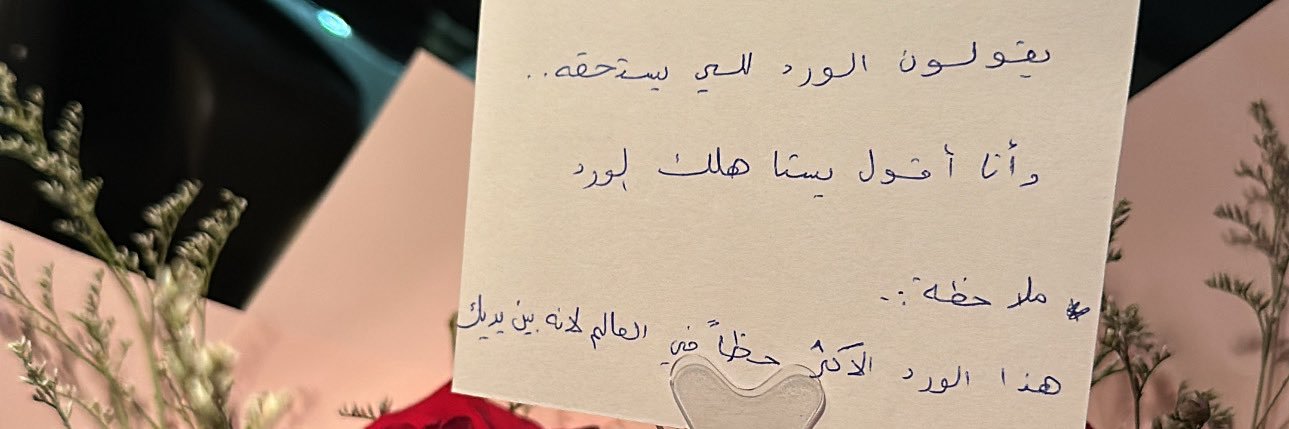 يقولون الورد للي يستحقه..
وأنا أقول يستاهلك الورد
* ملاحظة :-
هذا الورد الأكثر حظاً في العالم لانه بين يديك